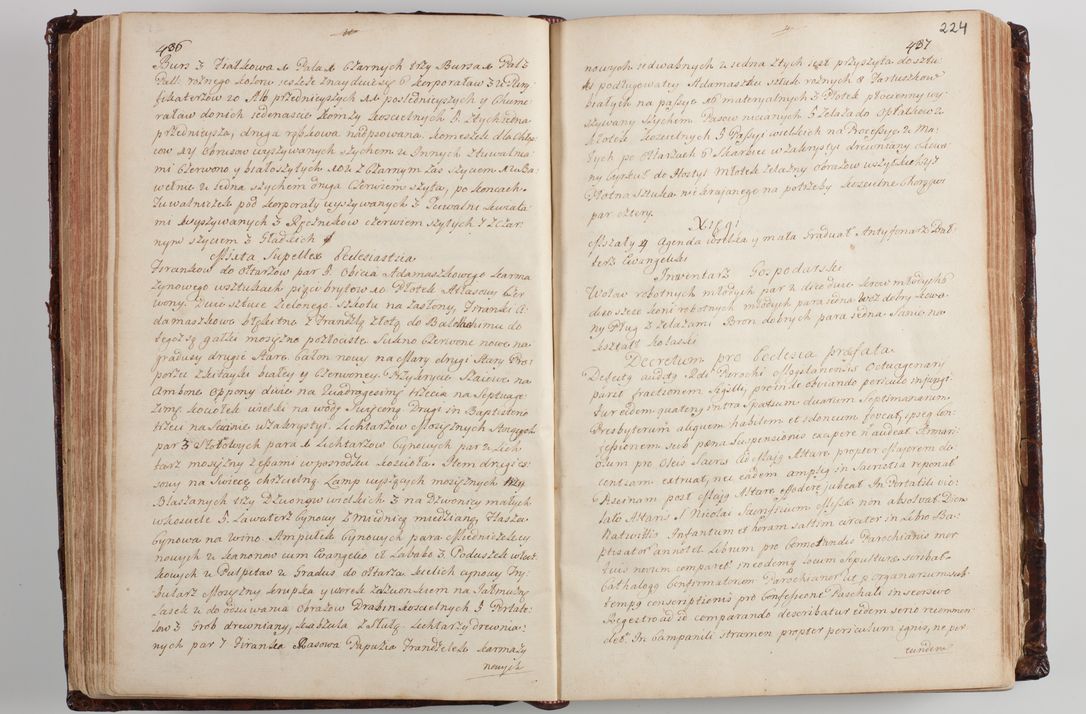 436
Burs z Fiałkowa 1. Pala 1. Czarnych trzy Bursa 1. Palz
Pall rożnego koloru ieszcze znayduiący 6 korporałow 32 Pury
fikaterzow 20 Alb przednieyszych 11 poslednieyszych y Chume
rałow do nich iedenascie Komży koscielnych 5. ztych iedna
przednieysza, druga rąbkowa nadpsowana. Komeszek dla Chłop
cow 14 Obrusow wyszywanych szychem 2 Innych
mi Czerwono y białoszytych 10. 2 z Czarnym zas szyciem
wełnie 2 iedna szychem druga Czerwiem szyta, po koncach.
Tuwalniczek pod korporały wyszywanych 3. Tuwalni kwiata
mi wyszywanych 3 Ręcznikow czerwiem szytych 7 z Czar
nym szyciem 3 Gładkich
Missta Supellex Ecclesiastica
Firankow do ołtarzow par 5. Obicia Adamaszkowego karma
zynowego wsztukach pięci brytow 10 Płotek Atłasowy Czer
wony. Dwie sztuce zielonego Szkotu na zasłony, Firanki A
damaszkowe błękitne z Frandzlą złotą do Baldakinu do
tegoż gałki mosiężne pozłociste Sukno Czerwone nowe na
gradusy drugie stare. Całon nowy na Mary drugi stary Pro
porzec z kitayki białey y Czerwoney. Przykrycie Staiowe na
Ambonę Oppony dwie na Quadragesimę trzecia na Septuage
zimę. Kociołek wielki na wodę Swięconą Drugi in Baptisterio
trzeci na scianie wzakrystyi. Lichtarzow Mosiężnych
par 3 Stołowych para 1 Lichtarzow Cynowych par 2 Lich
tarz mosiężny z ępami wposrodku koscioła. Item drugi
sowy na Swiecę chrzcielną Lamp wiszących mosiężnych trzy
Blaszanych trzy Dzwonow wielkich 3 na Dzwonicy małych
wkosciele 5. Lawaterz Cynowy z Miednicą miedzianą, Flasza
Cynowa na wino. Ampułek Cynowych para Miedniczek Cy
nowych 2 Kanonow cum Evangelio et Lavabo 3. Poduszek włos
kowych 2 Pulpitow 2 Gradus do ołtarza kielich cynowy Try
bularz Mosiężny skrupka y worek z dzwonkiem na Jałmużnę
Lasek 2 do odsuwania Obrazow Drabin koscielnych 5 Portate
low 3 Grob drewniany, Kapzula z Stułą Lichtarzy drewnia
nych par 7 Firanka Rasowa Papuzia Frandzelek karmazy
nowych

224
437
nowych iedwabnych 2 iedna ztych iest przyszyta do sztu
ki podługowatey Adamaszku sztuk rożnych 8 Fartuszkow
białych na passye 10 materyalnych 3 Płotek płocienny wy
szywany szychem Pasow nicianych 5 żelaza do Opłatkow 2
Młotek koscielnych 5 Passyi wielkich na Processye 2 Ma
łych po Ołtarzach 6 Skarbiec wzakrystyi drewniany
ny Cyrkuł do Hostyi Młotek żelazny obrazow wszytkich 47
Płotna sztuka niekrajanego na potrzeby koscielne Chorągwi
par cztery.
Xięgi
Mszały 4 Agenda wielka y mała Graduał Antyfonarz Psał
terz Ewangeliki
Inwentarz Gospodarski
Wołow robotnych młodych par 2 dwie krow młodych 6
szesc koni robotnych młodych para iedna Woz dobry kowa
ny Pług z żelazami Bron dobrych para iedna Sanie na
kształt kolaski
Decretum pro Ecclesia præfata
Defectą auditą Rdi Parochi Mogilanensis Octuagenary
parit fractionem Sigilli, proinde obviando periculo iniungi
tur eidem quatenus intra spatium duarum Septimanarum
Presbyterum aliquem habilem et idoneum foveat, ipseque Con
fessionem sub pœna suspensionis excipere n audeat Armari
olum pro Oleis Sacris ad Maius Altare propter Maiorem de
centiam extruat, nec eadem amplius in Sacristia reponat
Piscinam post Maius Altare effodere jubeat In Portatili vio
lato Altaris S. Nicolai Sacrificium Missæ non absolvat Diem
Nativitatis Infantum et horam saltim circiter in Libro Ba
ptisatorum annotet Librum pro Connotandis Parochianis mor
tuis novum comparet in eodemq locum Sepulturæ scribat
Cathalogo Confirmatorum Parochianorum ut p organarium sub
tempus conscriptionis pro Confessione Paschali inseorsivo
Regestro ad id comparando describatur eidem serio recommen
dat. In Campanili stramen propter periculum ignis, ne per
cundem